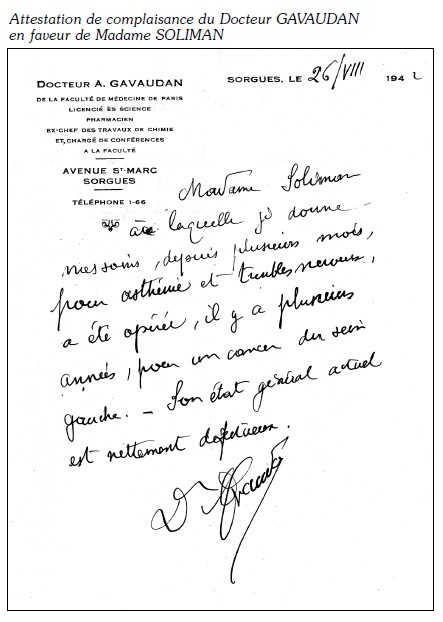 Attestation de complaisance du Docteur GAVAUDAN
en faveur de Madame SOLIMAN
DOCTEUR A. GAVAUDAN
DE LA FACULTÉ DE MÉDECINE DE PARIS
LICENCIÉ ÈS SCIENCE
PHARMACIEN
EX-CHEF DES TRAVAUX DE CHIMIE
ET CHARGÉ DE CONFÉRENCES
A LA FACULTÉ
AVENUE ST-MARC
SORGUES
TÉLÉPHONE 1-66
SORGUES, LE 26/VIII 1942
Madame Soliman
à laquelle je donne
mes soins, depuis plusieurs mois,
pour asthénie et troubles nerveux,
a été opérée, il y a plusieurs
années, pour un cancer du sein
gauche. – Son état général actuel
est nettement défectueux.
Dr Gavaudan